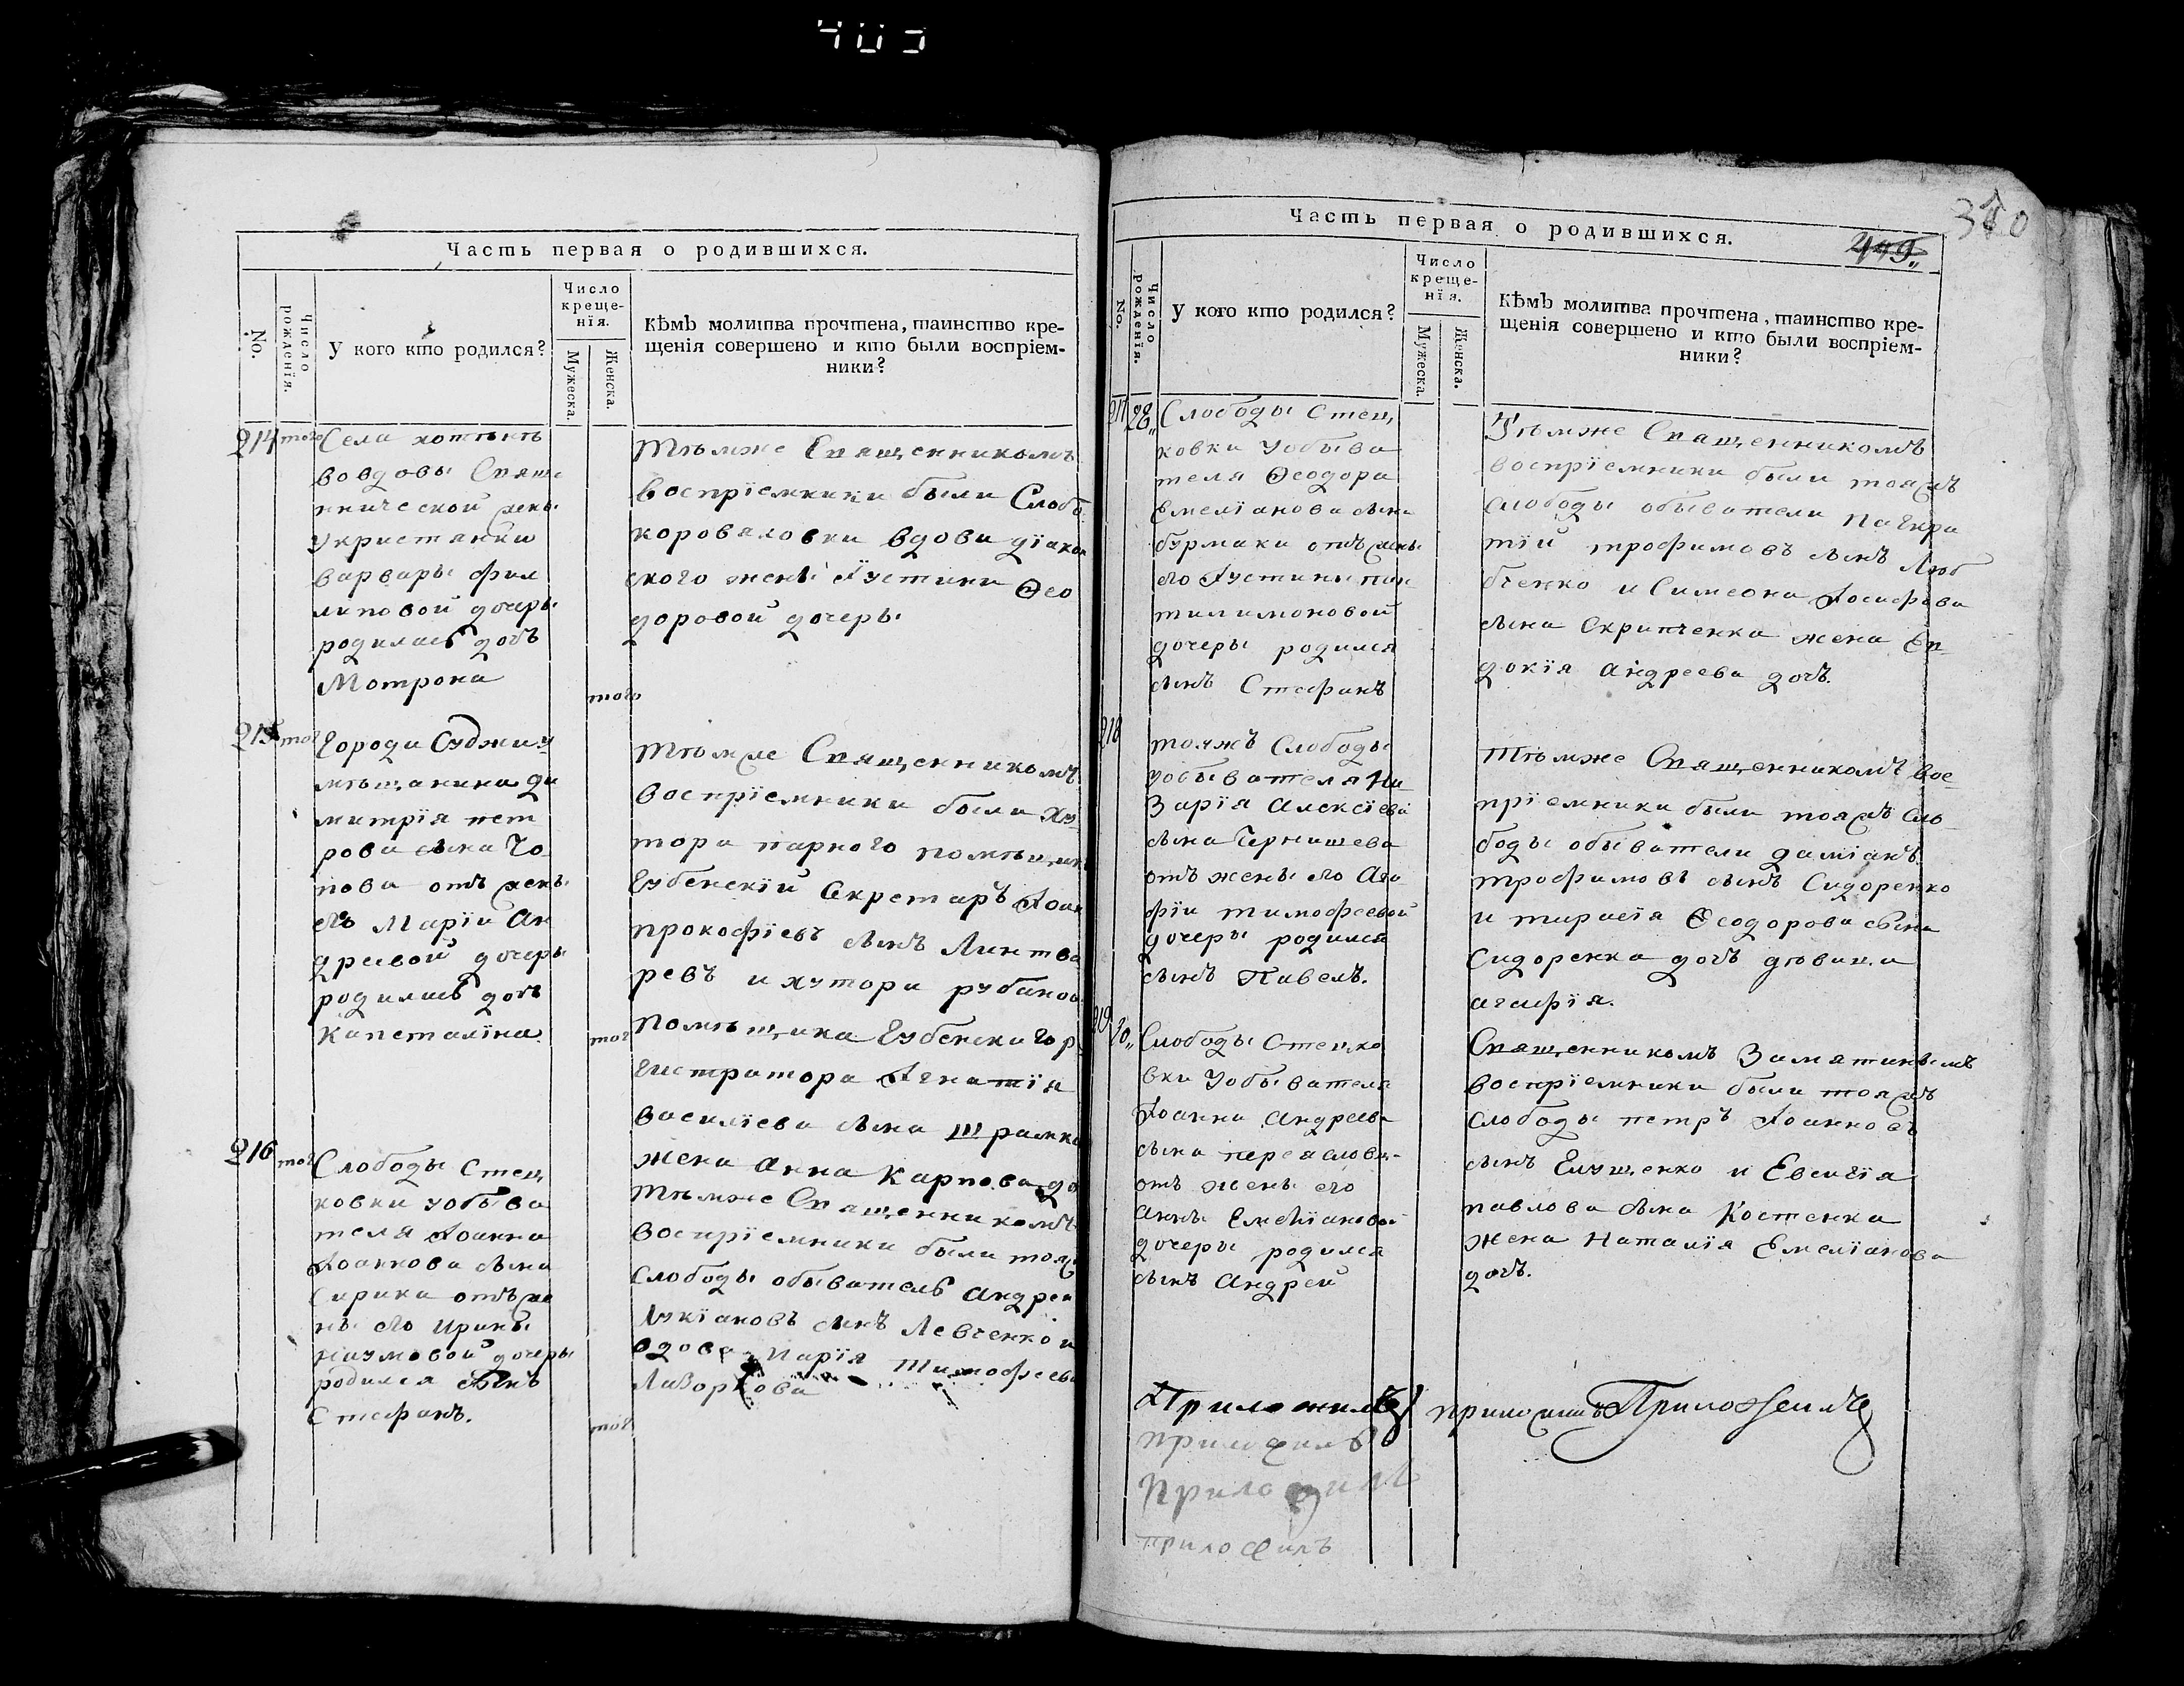 Часть первая о родившихся.
No.
Число рожденїя.
У кого кто родился?
Число
креще-
нїя.
Мужеска.
Женска.
Кѣмъ молитва прочтена, таинство кре-
щенія совершено и кто были воспріем-
ники?
214 того Села
вдовы
нической жены
Украстанки
варвары фил
иповой дочеры
родилась дочь
Мотрона
того
Тѣмже Священникомъ
воспрїемники были Слобо
короваловки вдова дїако
ского жены Їустина Ѳео
доровой дочеры
215 того Города Суджи у
мѣщанина ди
митрїя пет
рова сына По
пова отъ жены
его Марїи Ан
дреевой дочеры
родилась дочь
Капеталїна
того
Тѣмже Священникомъ
воспрїемники были ху
тора парного помѣщик
Губенскїй Секретаръ Їоан
прокофїевъ сынъ Линтва
ревъ и хутора рубанов
помѣщика Губенскаго р
гистратора Їгнатїя
василїева сына Шрамко
жена анна Карпова до
216 того Слободы Стец
ковки уобыва
теля Їоанна
Їоаннова сына
Сирика отъ же
ны его Ирины
Наумовой дочеры
родился сынъ
Стефанъ.
того
Тѣмже Священникомъ
воспрїемники были тояж
Слободы обыватель андрей
Лукїановъ сынъ Левченко и
вдова Марїя Тимофеева
Часть первая о родившихся.
449.
370
No.
Число рожденїя.
У кого кто родился?
Число
креще-
нїя.
Мужеска.
Женска.
Кѣмъ молитва прочтена, таинство кре-
щенія совершено и кто были воспріем-
ники?
217 28 Слободы Стец,
ковки уобыва
теля Ѳеодора
Емелїанова сына
бурмаки отъ жены
его Їустины пан
тилимоновой
дочеры родился
сынъ Стефанъ
Тѣмже Священникомъ
воспрїемники были тояжъ
слободы обыватели панкра
тїй трофимовъ сынъ Люб
ченко и Симеона Їосифова
сына Скрипченка жена Ев-
докїя андреева дочь.
218
тояжъ Слободы
уобывателя На
зарїя Алексїева
сына Чернишева
отъ жены его Ага
фїи тимофеевой
дочеры родился
сынъ Павелъ.
Тѣмже Священникомъ вос-
прїемники были тояжъ сло-
боды обыватели дамїанъ
трофимовъ сынъ Сидоренко
и тарасїя Ѳеодорова сына
Сидоренка дочь дѣвица
агафїя.
219 30 Слободы Стецко
вки уобывателя
Їоанна андреева
сына переяслов
отъ жены его
анны Емелїановой
дочеры родился
сынъ андрей
Священникомъ Заматинымъ
воспрїемники были тояжъ
слободы петръ Їоанновъ
сынъ Глущенко и Евсигїя
павлова сына Костенка
жена наталїя Емелїанова
дочь.
Приложилъ приложилъ Приложилъ
приложилъ
Приложилъ
приложилъ